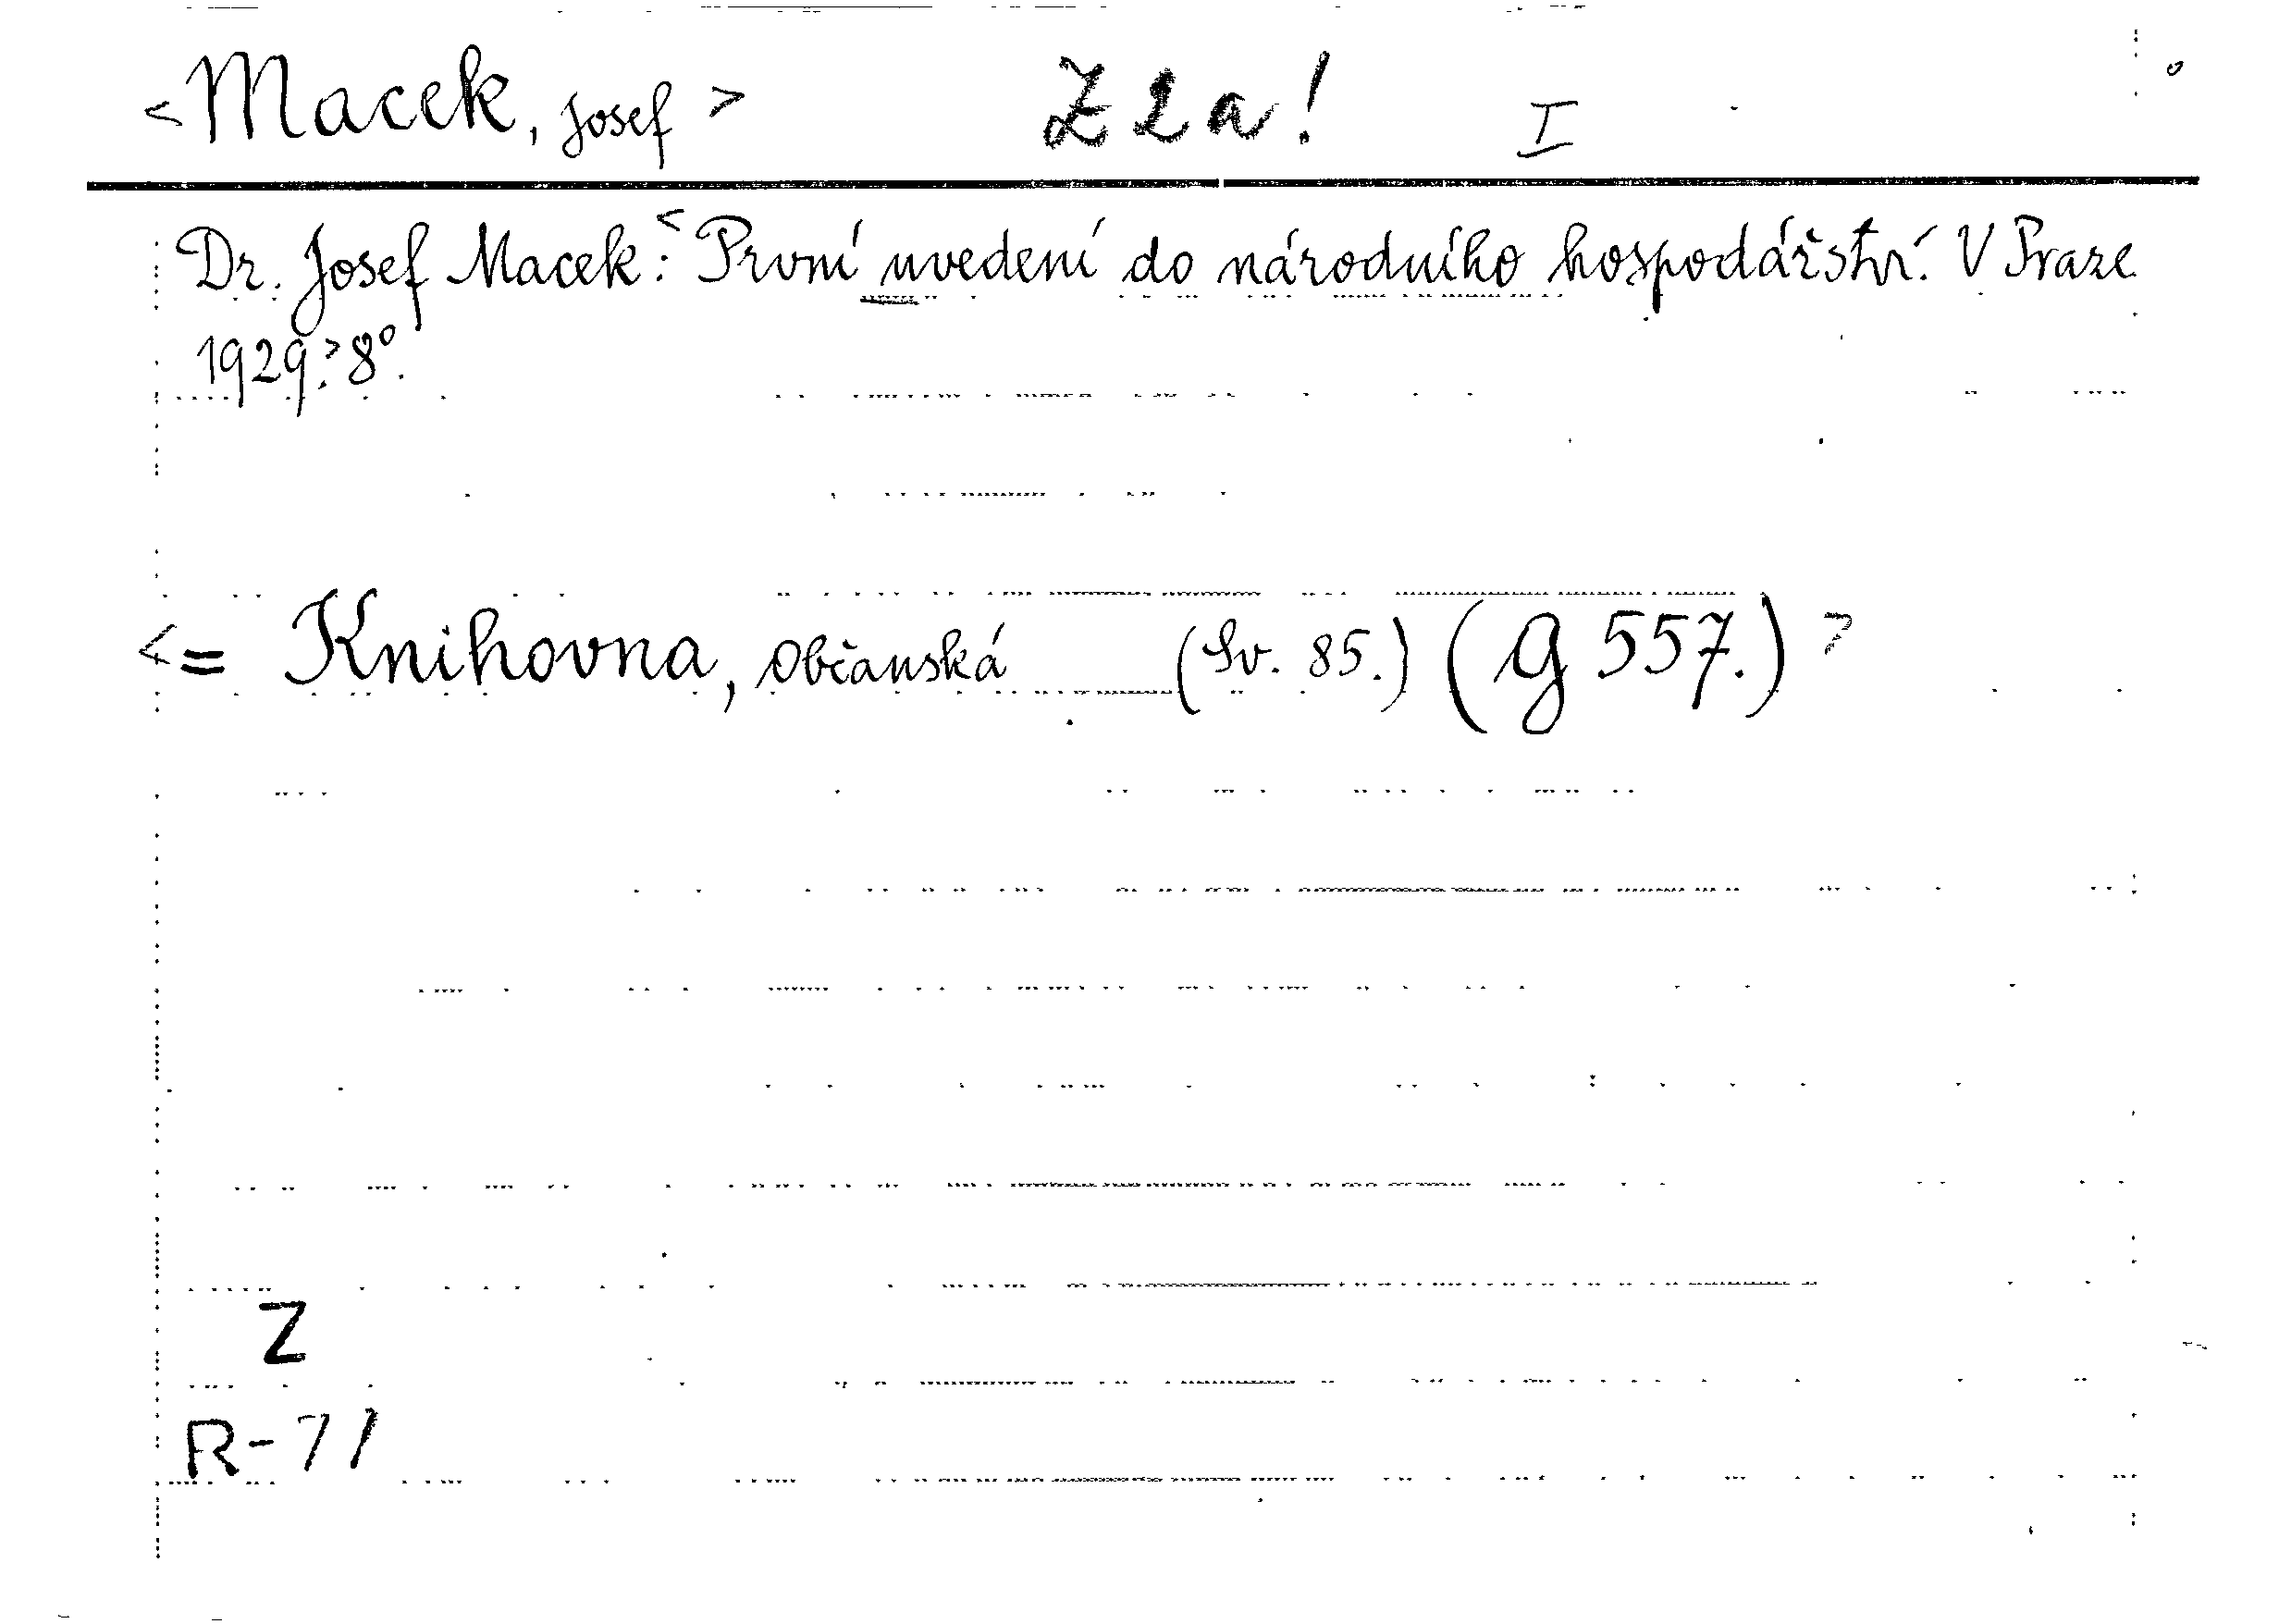 <Macek, Josef> Z 2 a! I
Dr. Josef Macek: <První uvedení do národního hospodářství. V Praze
1929.> 8°.
<= Knihovna, občanská (Sv. 85.) (G 557.)>
Z
R-71